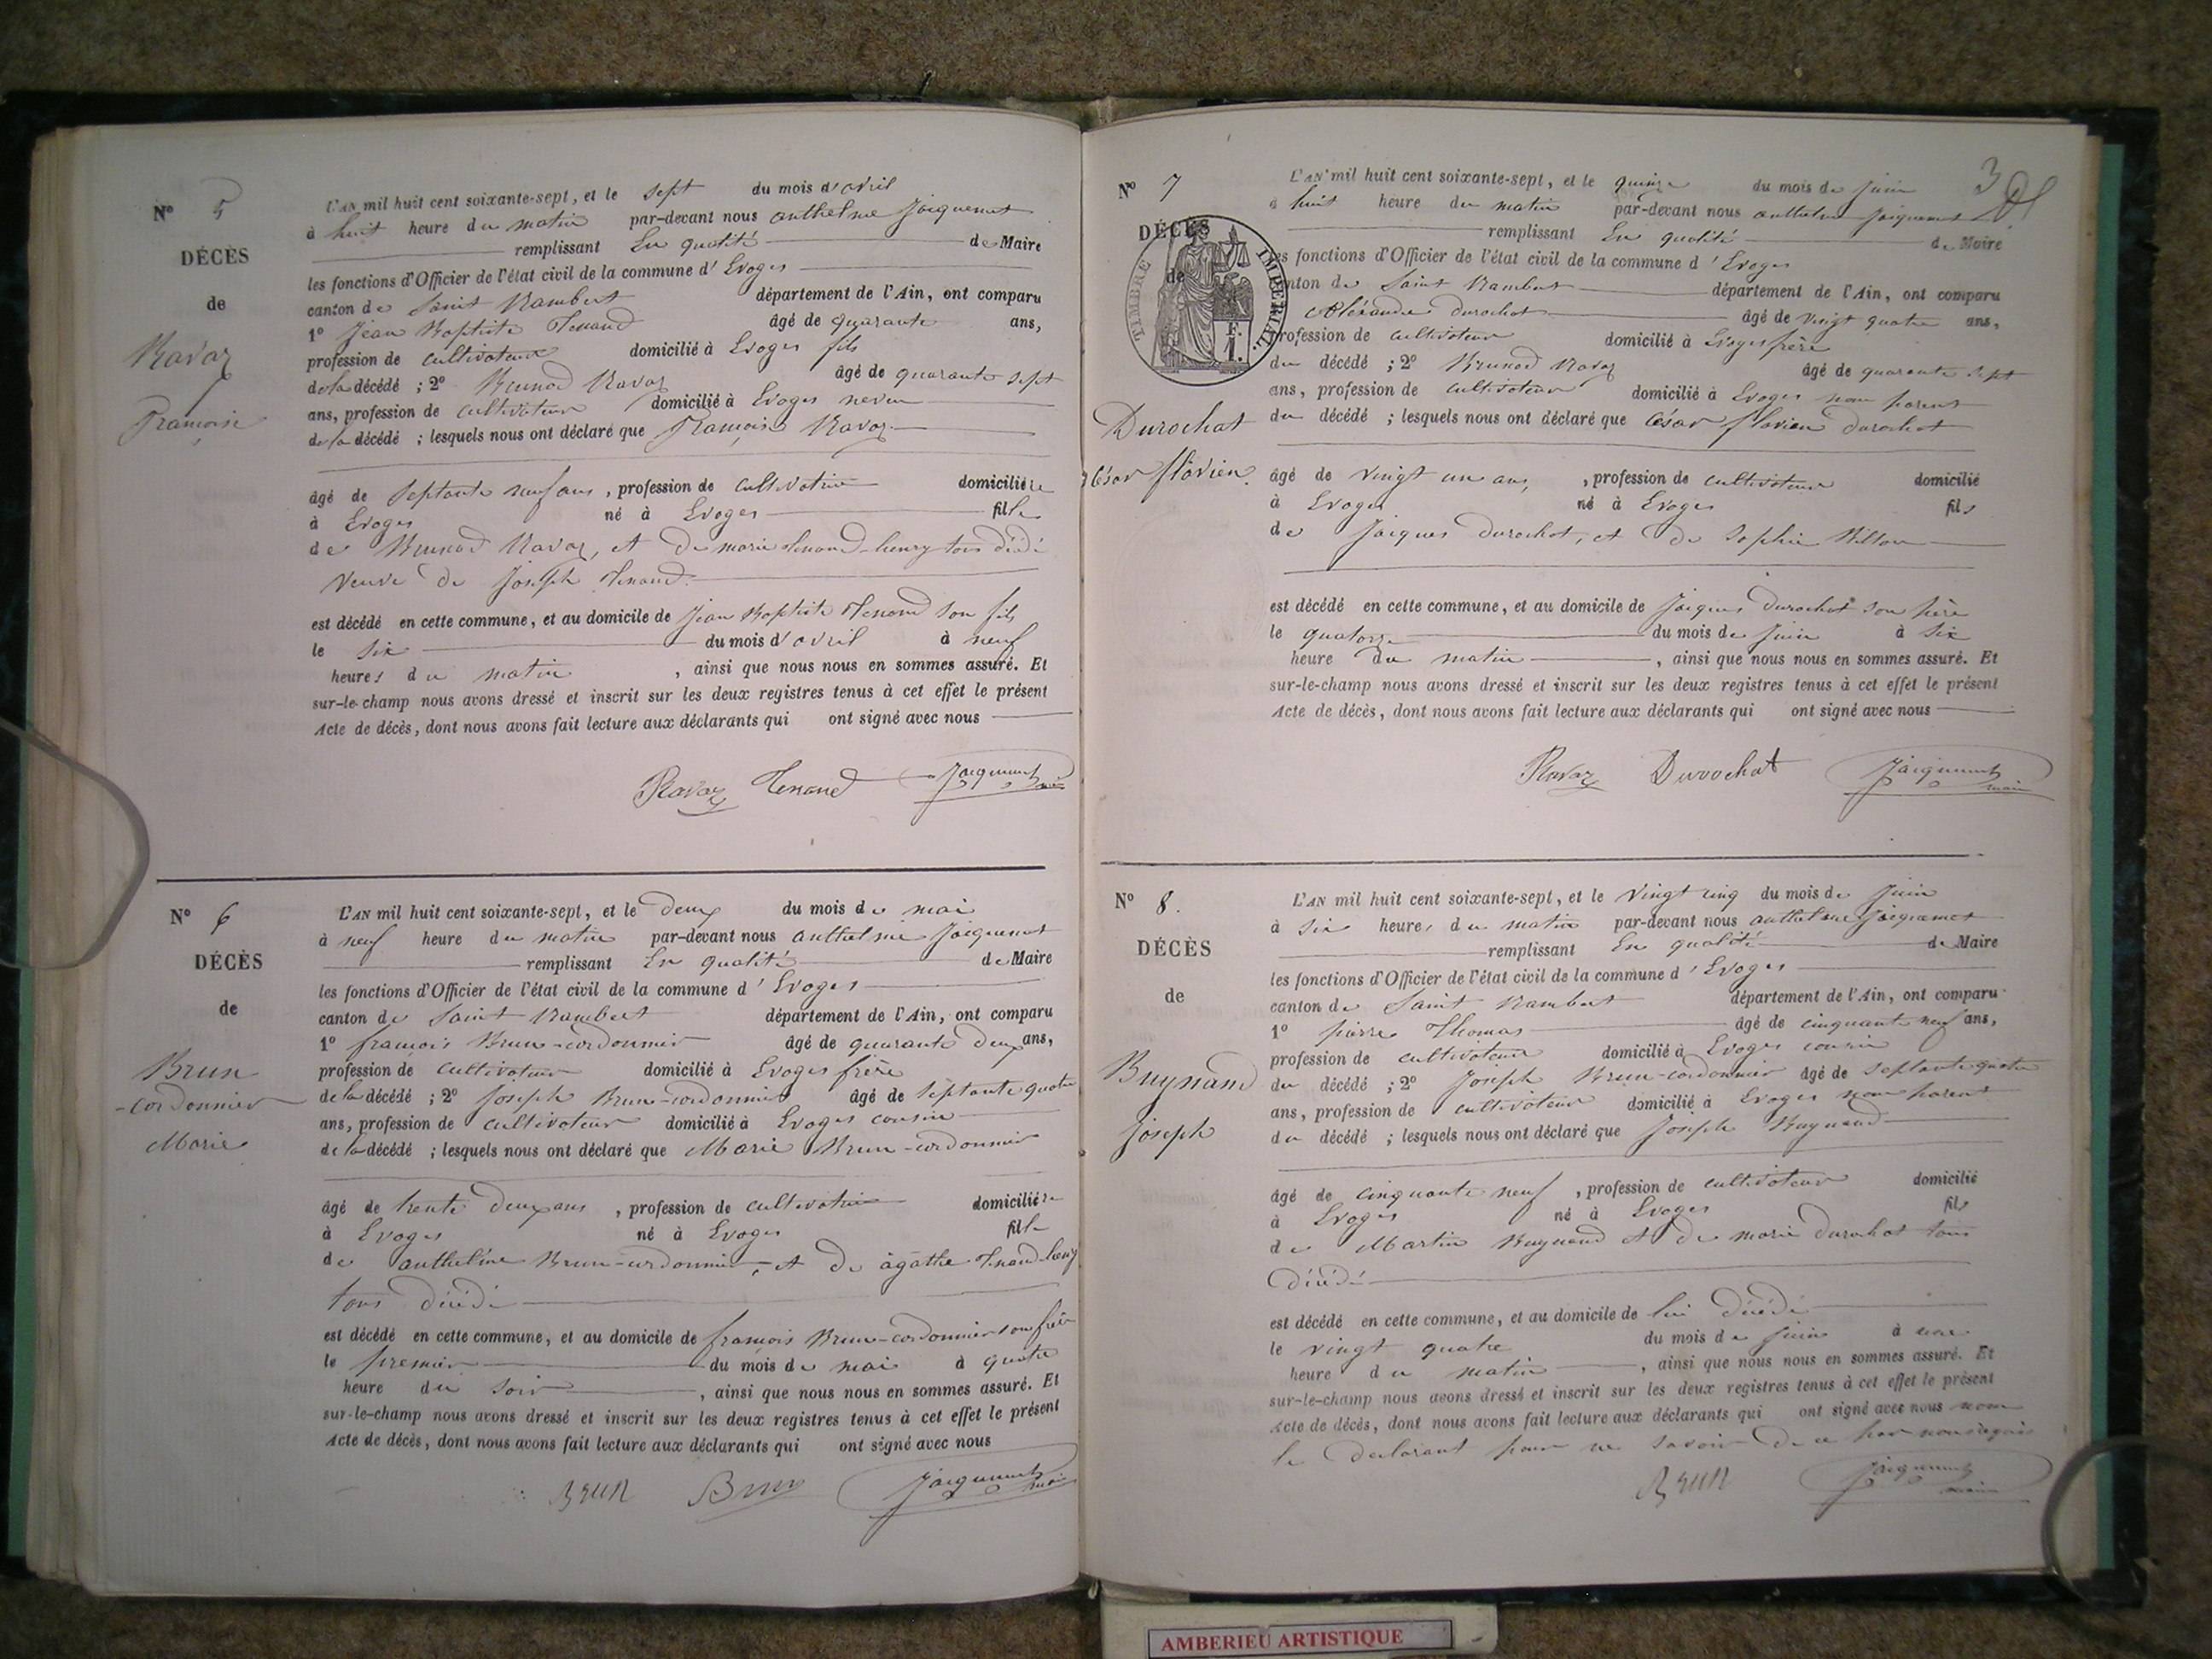 N° 5
DÉCÈS
de
Ravaz
Françoise
L'AN mil huit cent soixante-sept, et le sept du mois d'avril
à huit heure du matin par-devant nous anthelme Jacquemet
remplissant En qualité de Maire
les fonctions d'Officier de l'état civil de la commune d'Evoges
canton de Saint Rambert département de l'Ain, ont comparu
1° Jean Baptiste Tenand âgé de quarante ans,
profession de cultivateur domicilié à Evoges fils
de la décédé ; 2° Brunod Ravaz âgé de quarante sept
ans, profession de cultivateur domicilié à Evoges neveu
de la décédé ; lesquels nous ont déclaré que Françoise Ravaz
âgé de septante neuf ans, profession de cultivatrice domiciliére
à Evoges né à Evoges fille
de Brunod Ravaz, et de marie tenand-henry tous décédé
veuve de Joseph Tenand
est décédé en cette commune, et au domicile de Jean Baptiste Tenand son fils
le six du mois d'avril à neuf
heures du matin, ainsi que nous nous en sommes assuré. Et
sur-le-champ nous avons dressé et inscrit sur les deux registres tenus à cet effet le présent
Acte de décès, dont nous avons fait lecture aux déclarants qui ont signé avec nous
Ravaz Tenand Jacquemet maire
N° 6
DÉCÈS
de
Brun
-cordonnier
Marie
L'AN mil huit cent soixante-sept, et le deux du mois de mai
à neuf heure du matin par-devant nous anthelme Jacquemet
remplissant En qualité de Maire
les fonctions d'Officier de l'état civil de la commune d'Evoges
canton de Saint Rambert département de l'Ain, ont comparu
1° françois Brun-cordonnier âgé de quarante deux ans,
profession de cultivateur domicilié à Evoges frère
de la décédé ; 2° Joseph Brun-cordonnier âgé de septante quatre
ans, profession de cultivateur domicilié à Evoges cousin
de la décédé ; lesquels nous ont déclaré que Marie Brun-cordonnier
âgé de trente deux ans, profession de cultivatrice domiciliére
à Evoges né à Evoges fille
de anthelme Brun-cordonnier, et de agathe tenand-henry
tous décédé
est décédé en cette commune, et au domicile de françois Brun-cordonnier son frère
le premier du mois de mai à quatre
heure du soir, ainsi que nous nous en sommes assuré. Et
sur-le-champ nous avons dressé et inscrit sur les deux registres tenus à cet effet le présent
Acte de décès, dont nous avons fait lecture aux déclarants qui ont signé avec nous
BRUN Brun Jacquemet maire
3
N° 7
DÉCÈS
de
TIMBRE IMPÉRIAL
Durochat
César flavien
L'AN mil huit cent soixante-sept, et le quinze du mois de juin
à huit heure du matin par-devant nous anthelme Jacquemet
remplissant En qualité de Maire
les fonctions d'Officier de l'état civil de la commune d'Evoges
canton de Saint Rambert département de l'Ain, ont comparu
Aléxandre durochat âgé de vingt quatre ans,
profession de cultivateur domicilié à Evoges frère
du décédé ; 2° Brunod Ravaz âgé de quarante sept
ans, profession de cultivateur domicilié à Evoges non parent
du décédé ; lesquels nous ont déclaré que César flavien durochat
âgé de vingt un ans, profession de cultivateur domicilié
à Evoges né à Evoges fils
de Jacques durochat, et de Sophie
est décédé en cette commune, et au domicile de Jacques durochat son père
le quatorze du mois de juin à six
heure du matin, ainsi que nous nous en sommes assuré. Et
sur-le-champ nous avons dressé et inscrit sur les deux registres tenus à cet effet le présent
Acte de décès, dont nous avons fait lecture aux déclarants qui ont signé avec nous
Ravaz Durochat Jacquemet maire
N° 8.
DÉCÈS
de
Buynand
Joseph
L'AN mil huit cent soixante-sept, et le vingt cinq du mois de juin
à six heures du matin par-devant nous anthelme Jacquemet
remplissant En qualité de Maire
les fonctions d'Officier de l'état civil de la commune d'Evoges
canton de Saint Rambert département de l'Ain, ont comparu
1° pierre Thomas âgé de cinquante neuf ans,
profession de cultivateur domicilié à Evoges cousin
du décédé ; 2° Joseph Brun-cordonnier âgé de septante quatre
ans, profession de cultivateur domicilié à Evoges non parent
du décédé ; lesquels nous ont déclaré que Joseph Buynand
âgé de cinquante neuf, profession de cultivateur domicilié
à Evoges né à Evoges fils
de Martin Buynand et de marie durochat tous
décédé
est décédé en cette commune, et au domicile de lui décédé
le vingt quatre du mois de juin à une
heure du matin, ainsi que nous nous en sommes assuré. Et
sur-le-champ nous avons dressé et inscrit sur les deux registres tenus à cet effet le présent
Acte de décès, dont nous avons fait lecture aux déclarants qui ont signé avec nous non
le déclarant pour ne savoir de ce par nous requis
BRUN Jacquemet maire
AMBERIEU ARTISTIQUE